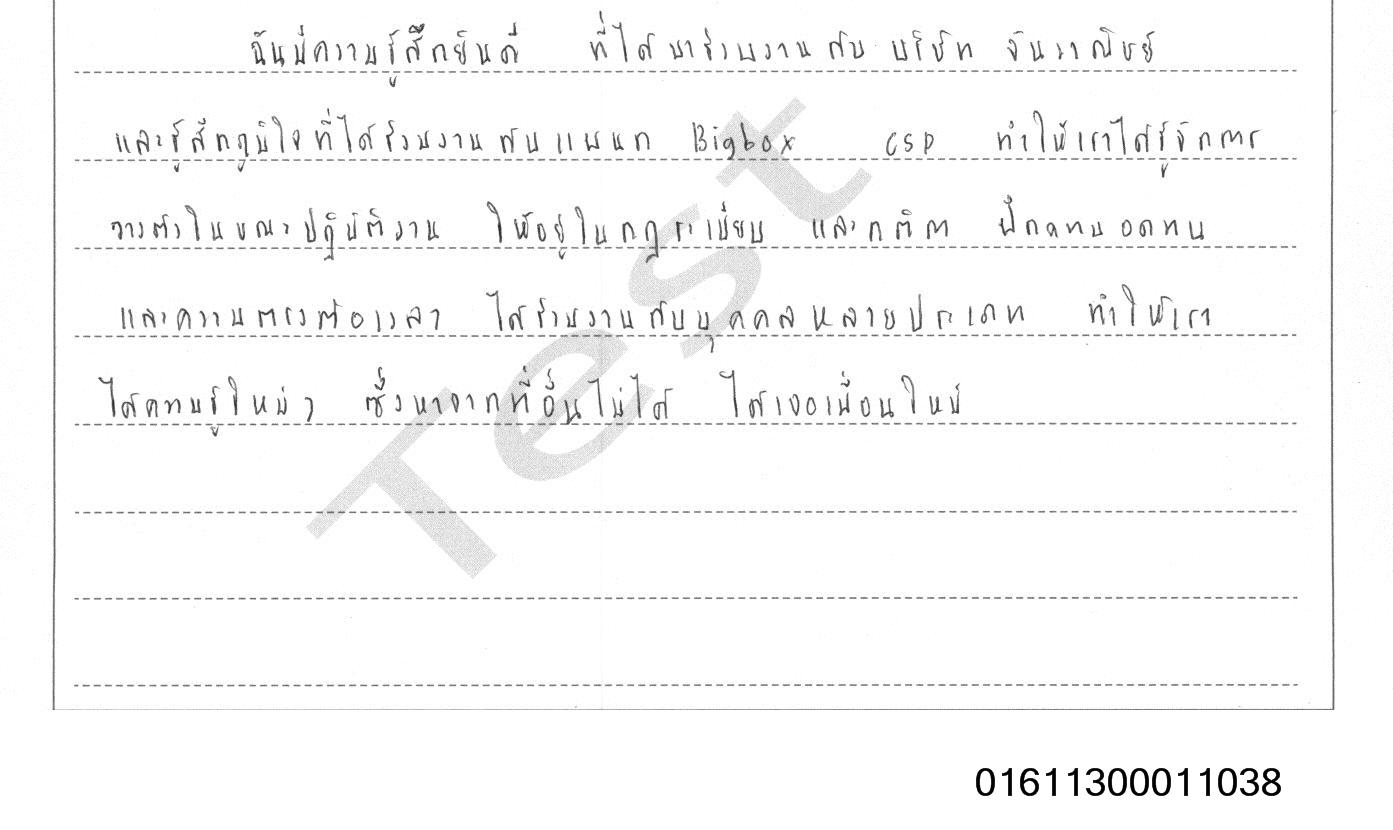 ฉันมีความรู้สึกยินดี ที่ได้มาร่วมงานกับ บริษัท จันวาณิชย์
และรู้สึกภูมิใจที่ได้ร่วมงานกับแผนก Bigbox CSP ทำให้เราได้รู้จักการ
วางตัวในขณะปฏิบัติงาน ให้อยู่ในกฎระเบียบ และกติกา ฝึกความอดทน
และความตรงต่อเวลา ได้ร่วมงานกับบุคคลหลายประเภท ทำให้เรา
ได้ความรู้ใหม่ๆ ซึ่งหาจากที่อื่นไม่ได้ ได้เจอเพื่อนใหม่
Test
01611300011038